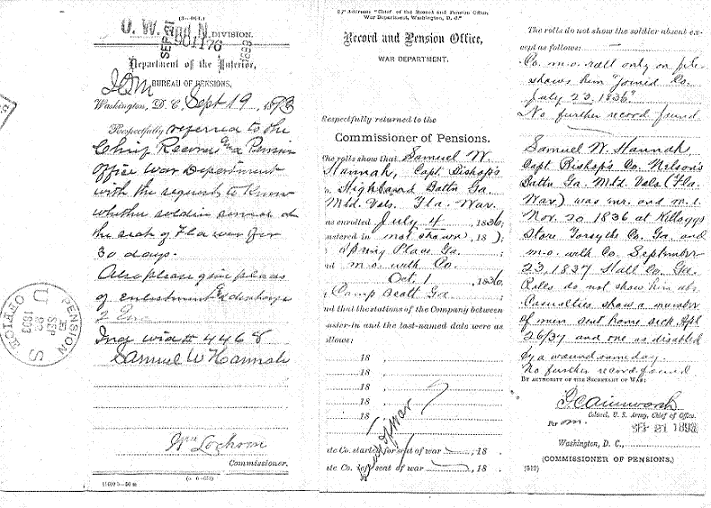 (3—064.)
O. W. AND N. DIVISION.
SEP 21
901176
1893
Department of the Interior,
BUREAU OF PENSIONS,
Washington, D. C., Sept 19, 1893
Respectfully referred to the
Chief Record and Pension
Office War Department
with the request to know
whether soldier served at
the seat of Fla war for
30 days.
Also please give places
of enlistment & discharge
2 Enc
Ind wid # 4468
Samuel W Hannah
Wm Lochren
Commissioner.
U S PENSION OFFICE
SEP 22 1893
Address: "Chief of the Record and Pension Office,
War Department, Washington, D. C."
Record and Pension Office,
WAR DEPARTMENT.
Respectfully returned to the
Commissioner of Pensions.
The rolls show that Samuel W.
Hannah, Capt. Bishop's
Co. Highland Battn Ga.
Mtd. Vols. Fla. War.
was enrolled July 4, 1836;
mustered in not shown, 18 );
Spring Place Ga.
and m.o. with Co.
Oct. 1, 1836,
Camp Scott Ga
and that the stations of the Company between
muster-in and the last-named date were as
follows:
18
18
18
18
18
seat of war
Co. started for seat of war, 18 .
Co. left seat of war, 18 .
The rolls do not show the soldier absent ex-
cept as follows:
Co. m.o. roll only on file
shows him "Joined Co.
July 23, 1836."
No further record found
Samuel W. Hannah
Capt. Bishop's Co. Nelson's
Battn Ga. Mtd. Vols. (Fla.
War) was enr. and m.i.
Nov. 20, 1836 at Kellogg's
Store Forsythe Co. Ga. and
m.o. with Co. September
23, 1837 Hall Co. Ga.
Rolls do not show him abs.
Casualties show a number
of men sent home sick Apl
26/37 and one as disabled
by a wound same day.
No further record found
BY AUTHORITY OF THE SECRETARY OF WAR:
F. C. Ainsworth
Colonel, U. S. Army, Chief of Office.
Per m.
SEP 21 1893
Washington, D. C.,
(COMMISSIONER OF PENSIONS.)